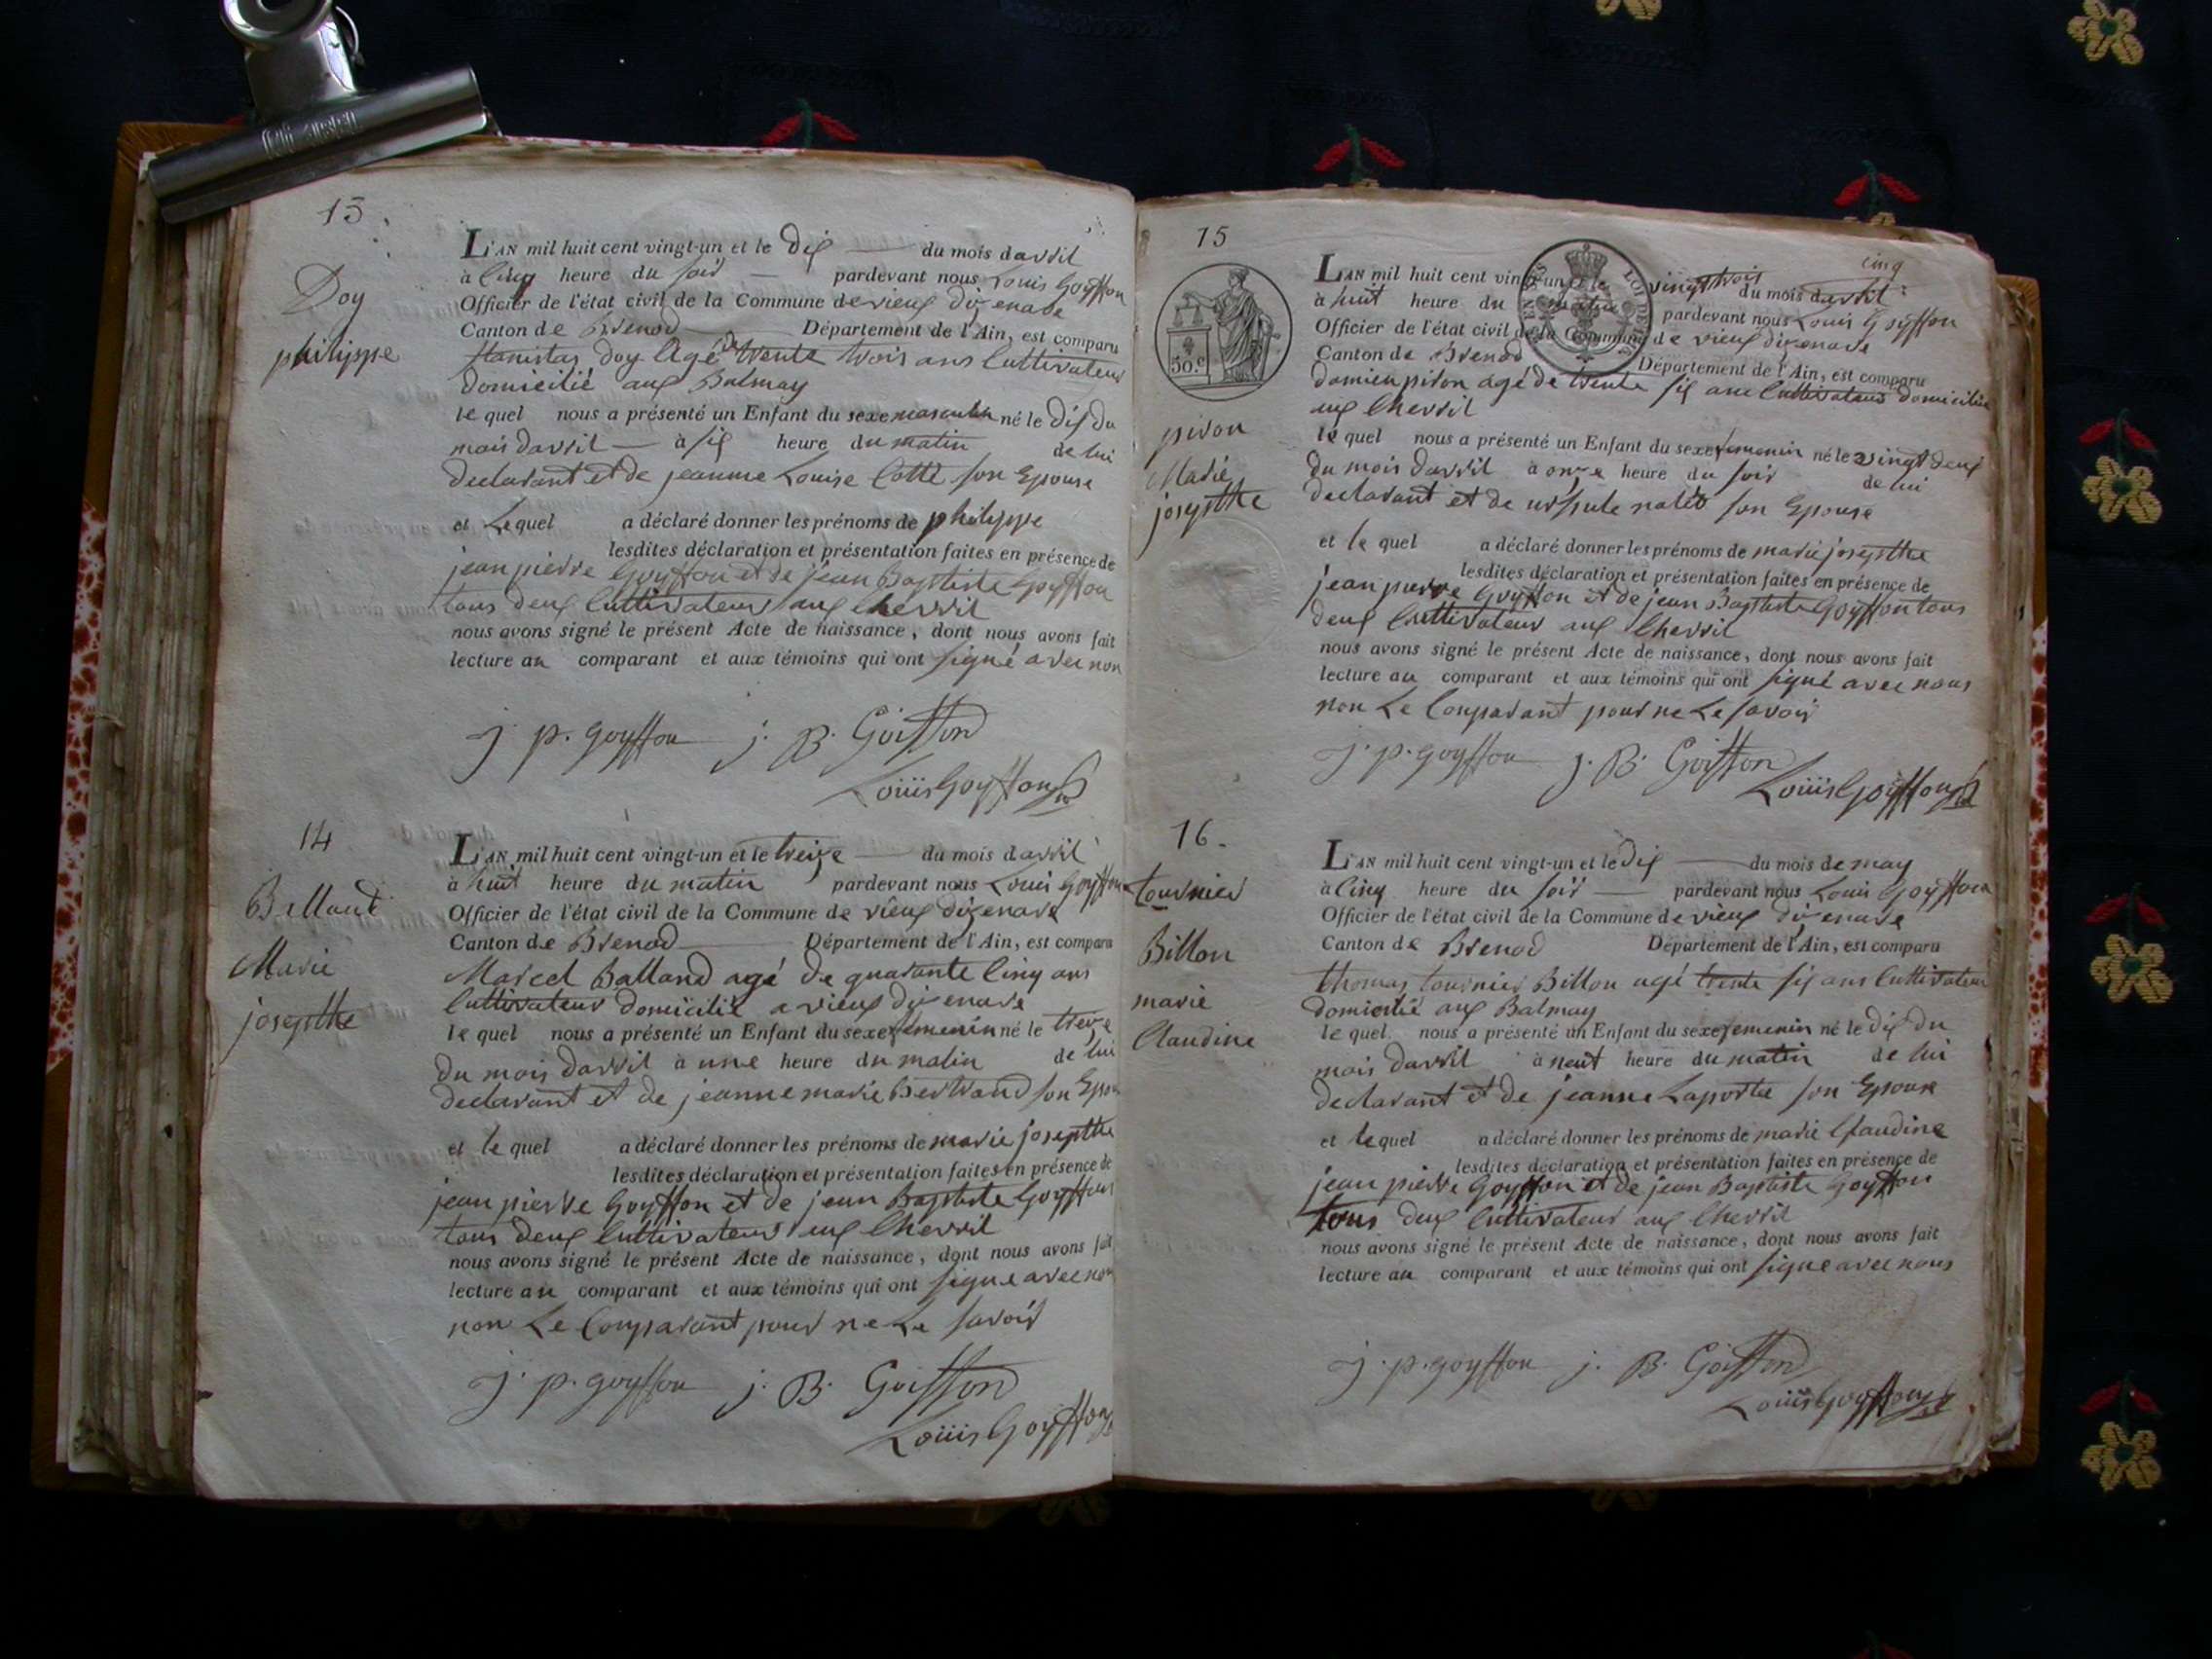 13
Doy
philippe
L'AN mil huit cent vingt-un et le Dix du mois davril
à Cinq heure du soir pardevant nous Louis Goyffon
Officier de l'état civil de la Commune de vieux dizenave
Canton de Brenod Département de l'Ain, est comparu
stanislas doy Agé de trente trois ans Cultivateur
domicilié aux Balmay
le quel nous a présenté un Enfant du sexe masculin né le Dix du
mois davril à six heure du matin de lui
declarant et de jeanne Louise Cotte son Epouse
et Le quel a déclaré donner les prénoms de philippe
lesdites déclaration et présentation faites en présence de
jean pierre Goyffon et de jean Baptiste Goyffon
tous deux Cultivateurs aux Chevril
nous avons signé le présent Acte de naissance, dont nous avons fait
lecture au comparant et aux témoins qui ont signé avec nou
j. p. goyffon j. B. Goiffon
Louis Goyffon
14
Balland
Marie
josepthe
L'AN mil huit cent vingt-un et le treize du mois davril
à huit heure du matin pardevant nous Louis Goyffon
Officier de l'état civil de la Commune de vieux dizenave
Canton de Brenod Département de l'Ain, est comparu
Marcel Balland agé de quarante Cinq ans
Cultivateur domicilié a vieux dizenave
le quel nous a présenté un Enfant du sexe femenin né le treize
du mois davril à une heure du matin de lui
declarant et de jeanne marie Bertrand son Epou
et le quel a déclaré donner les prénoms de marie josepthe
lesdites déclaration et présentation faites en présence de
jean pierre Goyffon et de jean Baptiste Goyffon
tous deux Cultivateurs aux Chevril
nous avons signé le présent Acte de naissance, dont nous avons fait
lecture au comparant et aux témoins qui ont signe avec nou
non Le Comparant pour ne Le savoir
j. p. goyffon j. B. Goiffon
Louis Goyffon
15
50.c
piron
Marie
josepthe
cinq
L'AN mil huit cent vingt-un et le vingt trois du mois davril
à huit heure du matin pardevant nous Louis Goyffon
Officier de l'état civil de la Commune de vieux dizenave
Canton de Brenod Département de l'Ain, est comparu
damien piron agé de trente six ans Cultivateur domicilié
aux Chevril
le quel nous a présenté un Enfant du sexe femenin né le vingt deux
du mois davril à onze heure du soir de lui
declarant et de ursule son Epouse
et le quel a déclaré donner les prénoms de marie josepthe
lesdites déclaration et présentation faites en présence de
jean pierre Goyffon et de jean Baptiste Goyffon tous
deux Cultivateur aux Chevril
nous avons signé le présent Acte de naissance, dont nous avons fait
lecture au comparant et aux témoins qui ont signé avec nous
non Le Comparant pour ne Le savoir
j. p. goyffon j. B. Goiffon
Louis Goyffon
16.
tournier
Billon
marie
Claudine
L'AN mil huit cent vingt-un et le dix du mois de may
à Cinq heure du soir pardevant nous Louis Goyffon
Officier de l'état civil de la Commune de vieux dizenave
Canton de Brenod Département de l'Ain, est comparu
thomas tournier Billon agé trente six ans Cultivateur
domicilié aux Balmay
le quel nous a présenté un Enfant du sexe femenin né le dix du
mois davril à neuf heure du matin de lui
declarant et de jeanne Laporte son Epouse
et le quel a déclaré donner les prénoms de marie Claudine
lesdites déclaration et présentation faites en présence de
jean pierre Goyffon et de jean Baptiste Goyffon
tous deux Cultivateur aux Chevril
nous avons signé le présent Acte de naissance, dont nous avons fait
lecture au comparant et aux témoins qui ont signe avec nous
j. p. goyffon j. B. Goiffon
Louis Goyffon